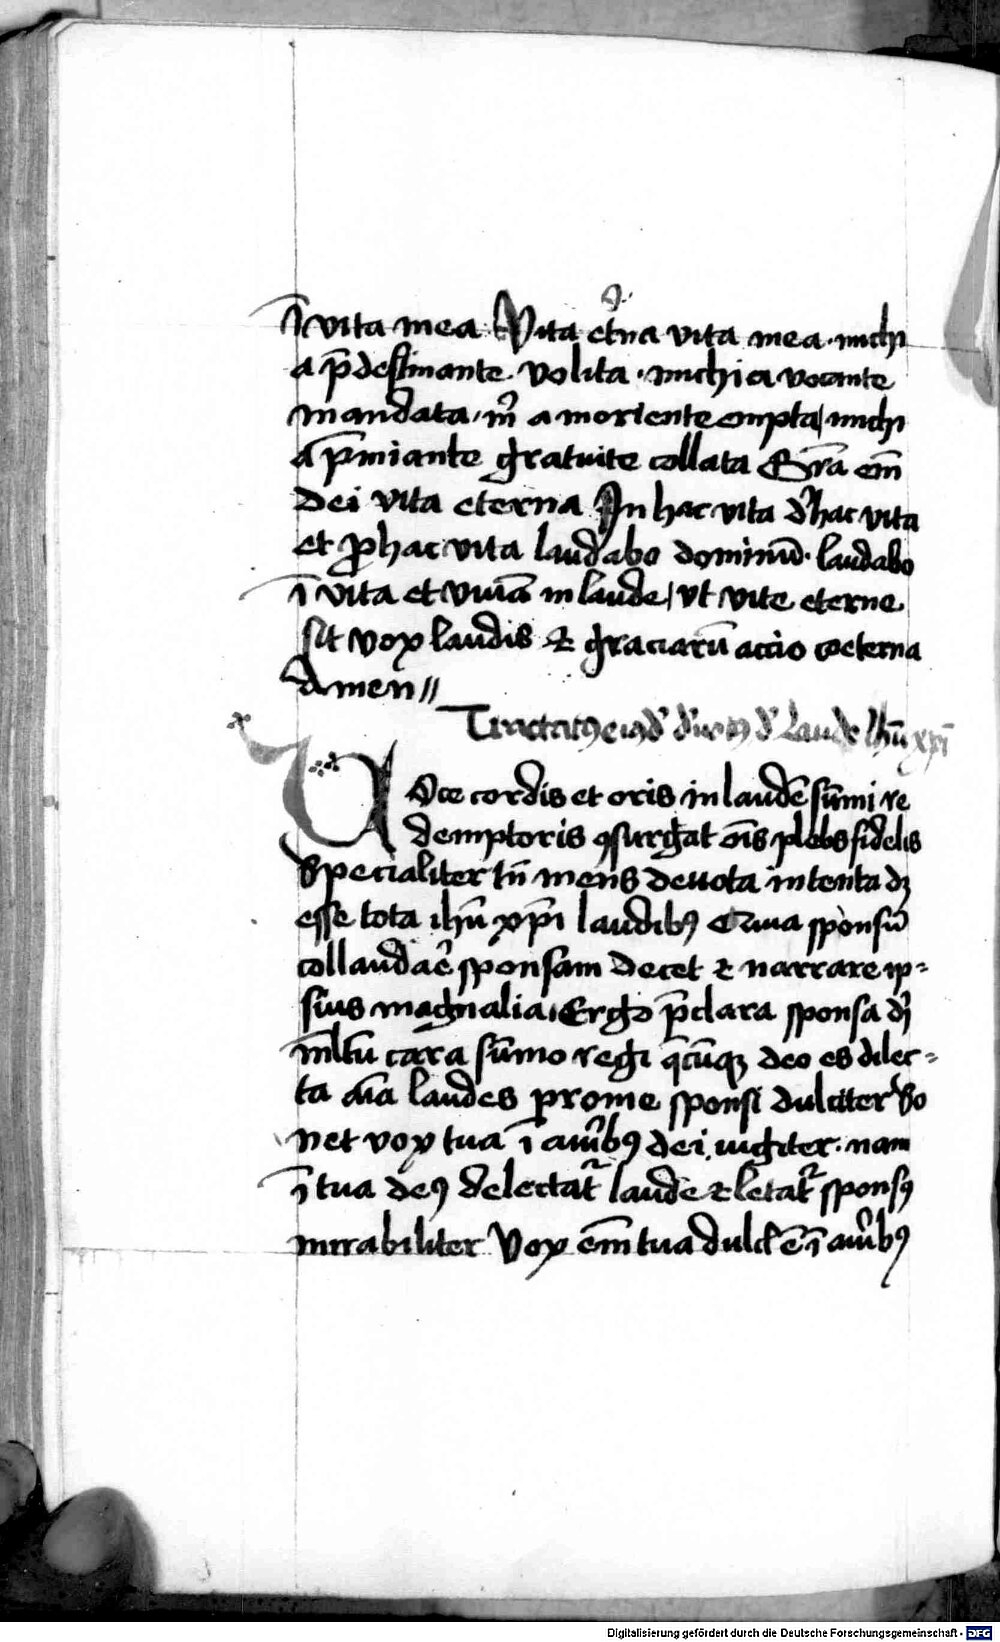 ī vita mea Vita et̄na vita mea · michi
a p̄destinante · volita · michi a vocante
mandata · m̄ a moriente empta / michi
a p̄miante gratuite collata Gr̄a em̄
dei vita eterna In hac vita d' hac vita
et ꝓ hac vita laudabo dominū · laudabo
ī vita et viuā in laude / vt vite eterne
sit vox laudis & graciarū accio eterna
Amen //
Tractatꝰ eiusd' d' laude ihū xp̄i
Voce cordis et oris in laudē sūmi re
demptoris ꝯsurgat oīs plebs fidelis
Specialiter tn̄ mens deuota intenta dꝫ
esse tota ihū xp̄i laudibꝰ sponsū
collaudar̄e sponsam decet & narrare ip=
sius magnalia, Ergo p̄clara sponsa d'i
ml̄tū cara sūmo regi q̄cūqꝫ deo es dilec=
ta aīa laudes prome sponsi dulciter So
net vox tua ī aur̄ibꝰ dei iugiter · nam
ī tua deꝰ delectat᷑ laude & letat᷑ sponsꝰ
mirabiliter Vox em̄ tua dulc' ē ī aur̄ibꝰ